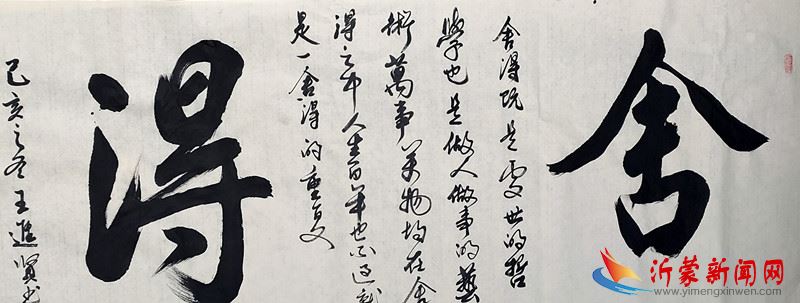 舍
舍得既是處世的哲
學也是做人做事的藝
術萬事萬物均在舍
得之中人生百年也不過就
是一舍得的重复
得
己亥之冬王進賢书
沂蒙新闻网
www.yimengxinwen.com